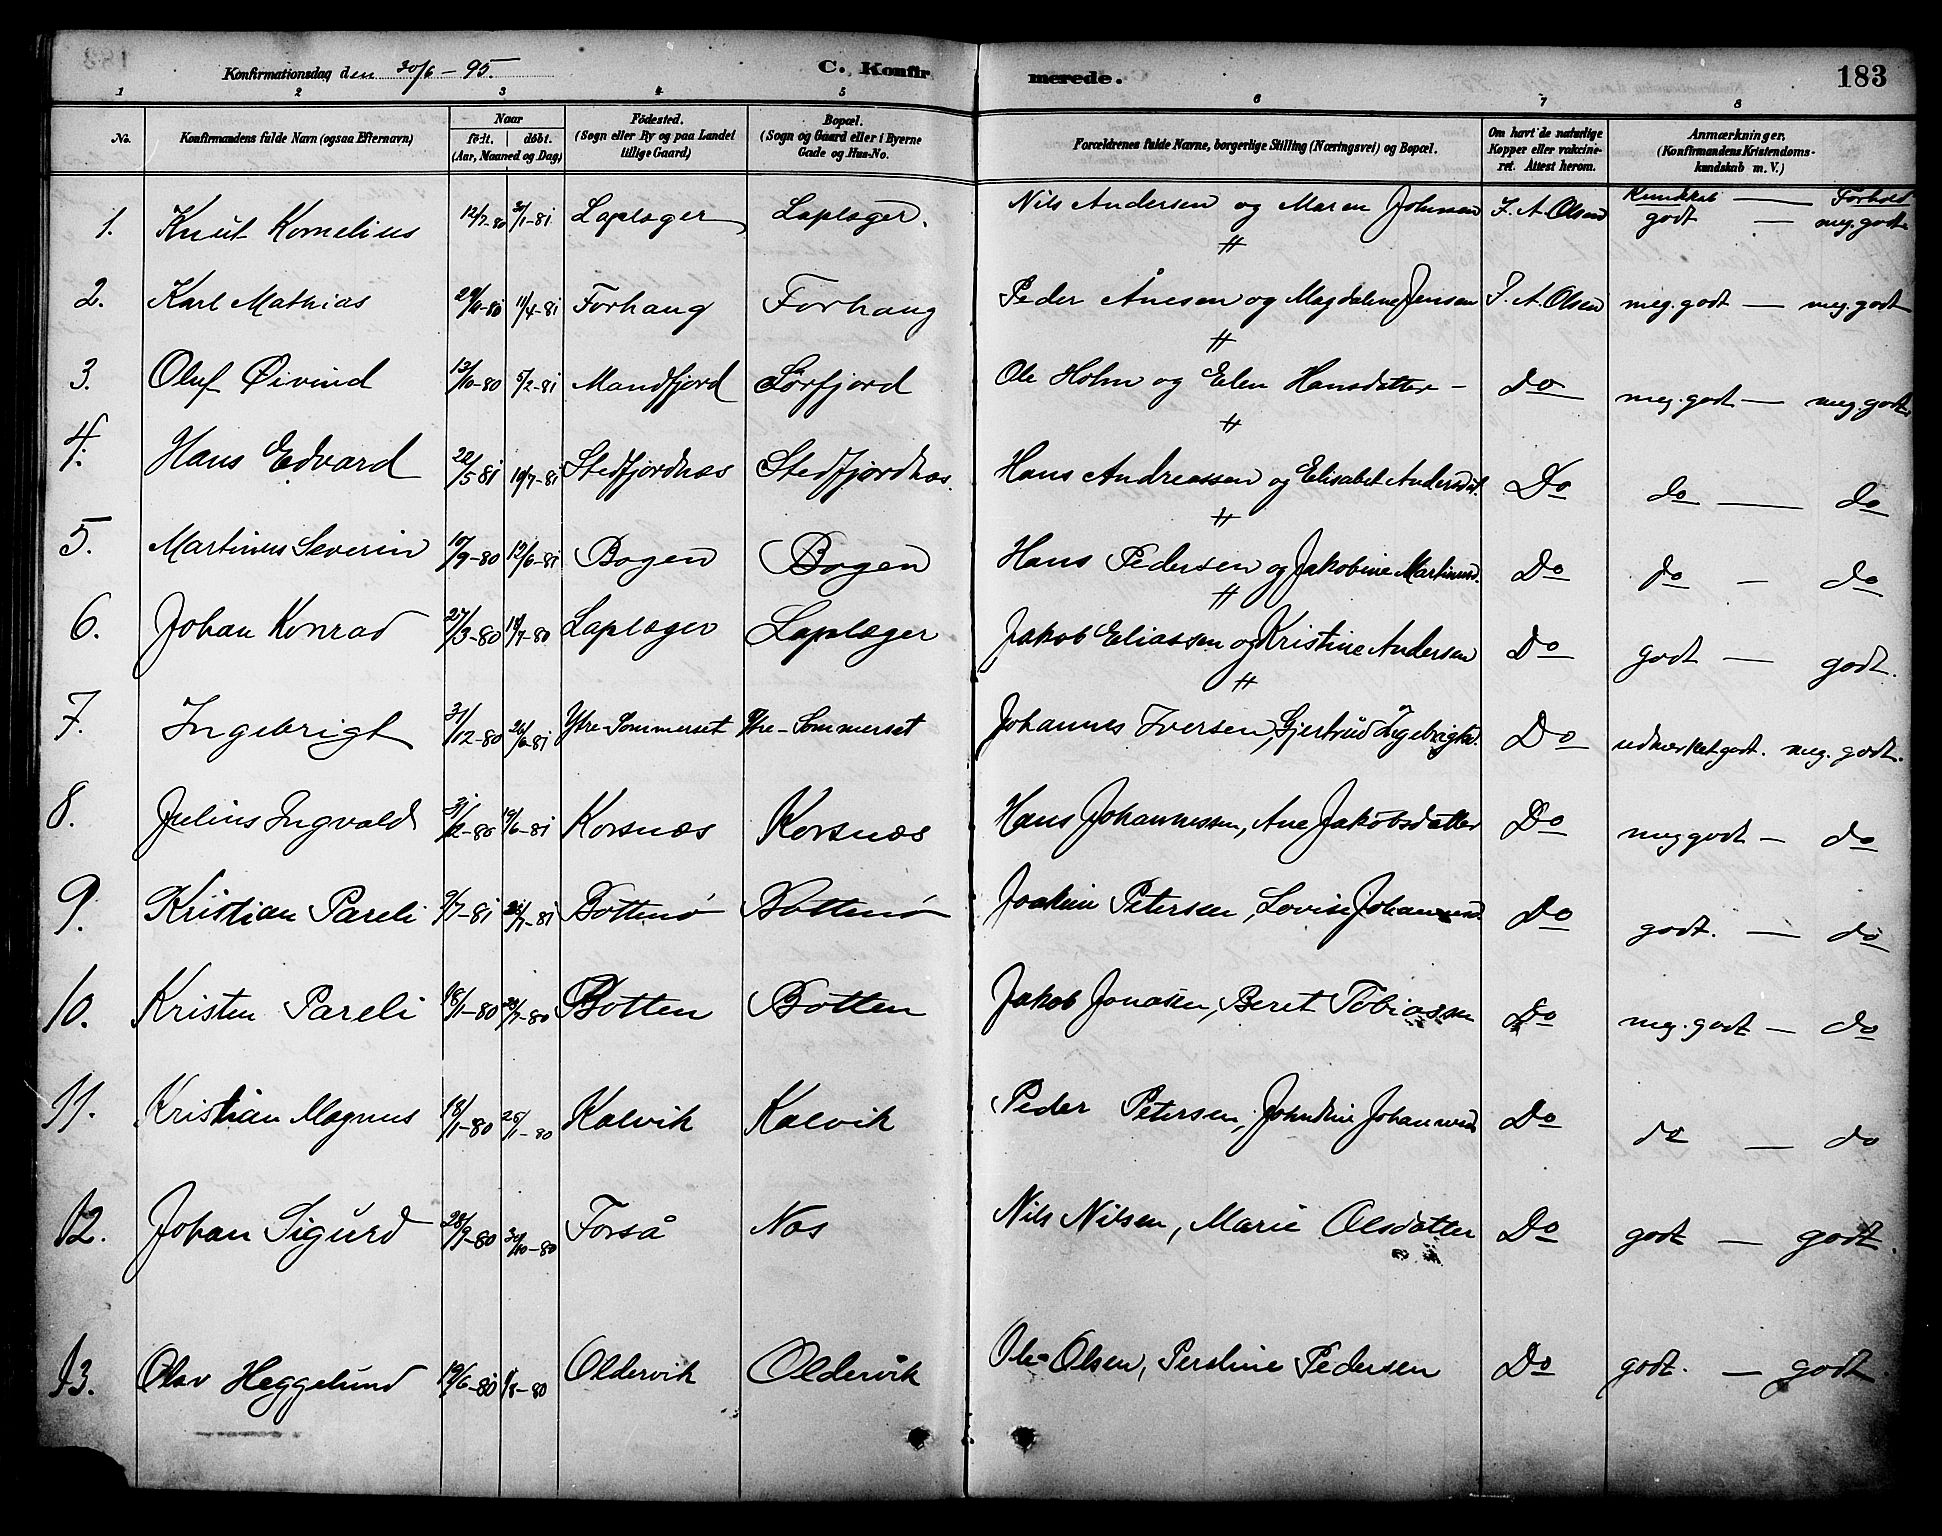 Konfirmationsdag den 30/6 - 95. C. Konfirmerede. 183
1 2 3 4 5 6 7 8
No. Konfirmandens fulde Navn (ogsaa Efternavn) Naar født. døbt. (Aar, Maaned og Dag) Fødested. (Sogn eller By og paa Landet tillige Gaard) Bopæl. (Sogn og Gaard eller i Byerne Gade og Hus-No. Forældrenes fulde Navne, borgerlige Stilling (Næringsvei) og Bopæl. Om havt de naturlige Kopper eller vaccineret. Attest herom. Anmærkninger. (Konfirmandens Kristendomskundskab m. V.)
Kundskab — Forhold
1. Knut Kornelius 12/7-80 3/1-81 Laplæger Laplæger. Nils Andersen og Maren Johnsen J. A. Olsen godt — meg. godt
2. Karl Mathias 29/11-80 11/4-81 Forhaug Forhaug Peder Ånesen og Magdalene Jensen J. A. Olsen meg. godt — meg. godt
3. Oluf Øivind 13/10-80 5/2-81 Mandfjord Sørfjord Ole Holm og Elen Hansdatter - Do meg. godt — meg. godt
4. Hans Edvard 22/5 81 10/7-81 Stedfjordnæs Stedfjordnæs. Hans Andreassen og Elisabet Andersdat. Do do — do
5. Martinus Severin 10/9-80 12/6-81 Bogen Bogen Hans Pedersen og Jakobine Martinusd. Do do — do
6. Johan Konrad 27/3-80 18/7-80 Laplæger Laplæger Jakob Eliassen og Kristine Andersen Do godt — godt.
7. Ingebrigt 31/12-80 26/6-81 Ytre-Sommerset Ytre-Sommerset Johannes Iversen, Gjertrud Ingebrigtsd. Do udmærket godt. meg. godt.
8. Julius Ingvald 31/12-80 19/6-81 Korsnæs Korsnæs Hans Johannessen, Ane Jakobsdatter Do meg godt — do
9. Kristian Pareli 9/7-81 /7-81 Bottenø Bottenø Joakim Petersen, Lovise Johannesd. Do godt. — do
10. Kristen Pareli 18/1-80 /7-80 Botten Botten Jakob Jonassen, Beret Tobiassen Do meg. godt — do
11. Kristian Magnus 18/1-80 25/1-80 Kalvik Kalvik Peder Petersen, Johannesd. Do do — do
12. Johan Sigurd 28/9-80 30/10-80 Forså Nos Nils Nilsen, Marie Olsdatter Do godt — godt.
13. Olav Heggelund 19/6-80 1/8-80 Oldervik Oldervik Ole Olsen, Peroline Pedersen Do godt. — godt.